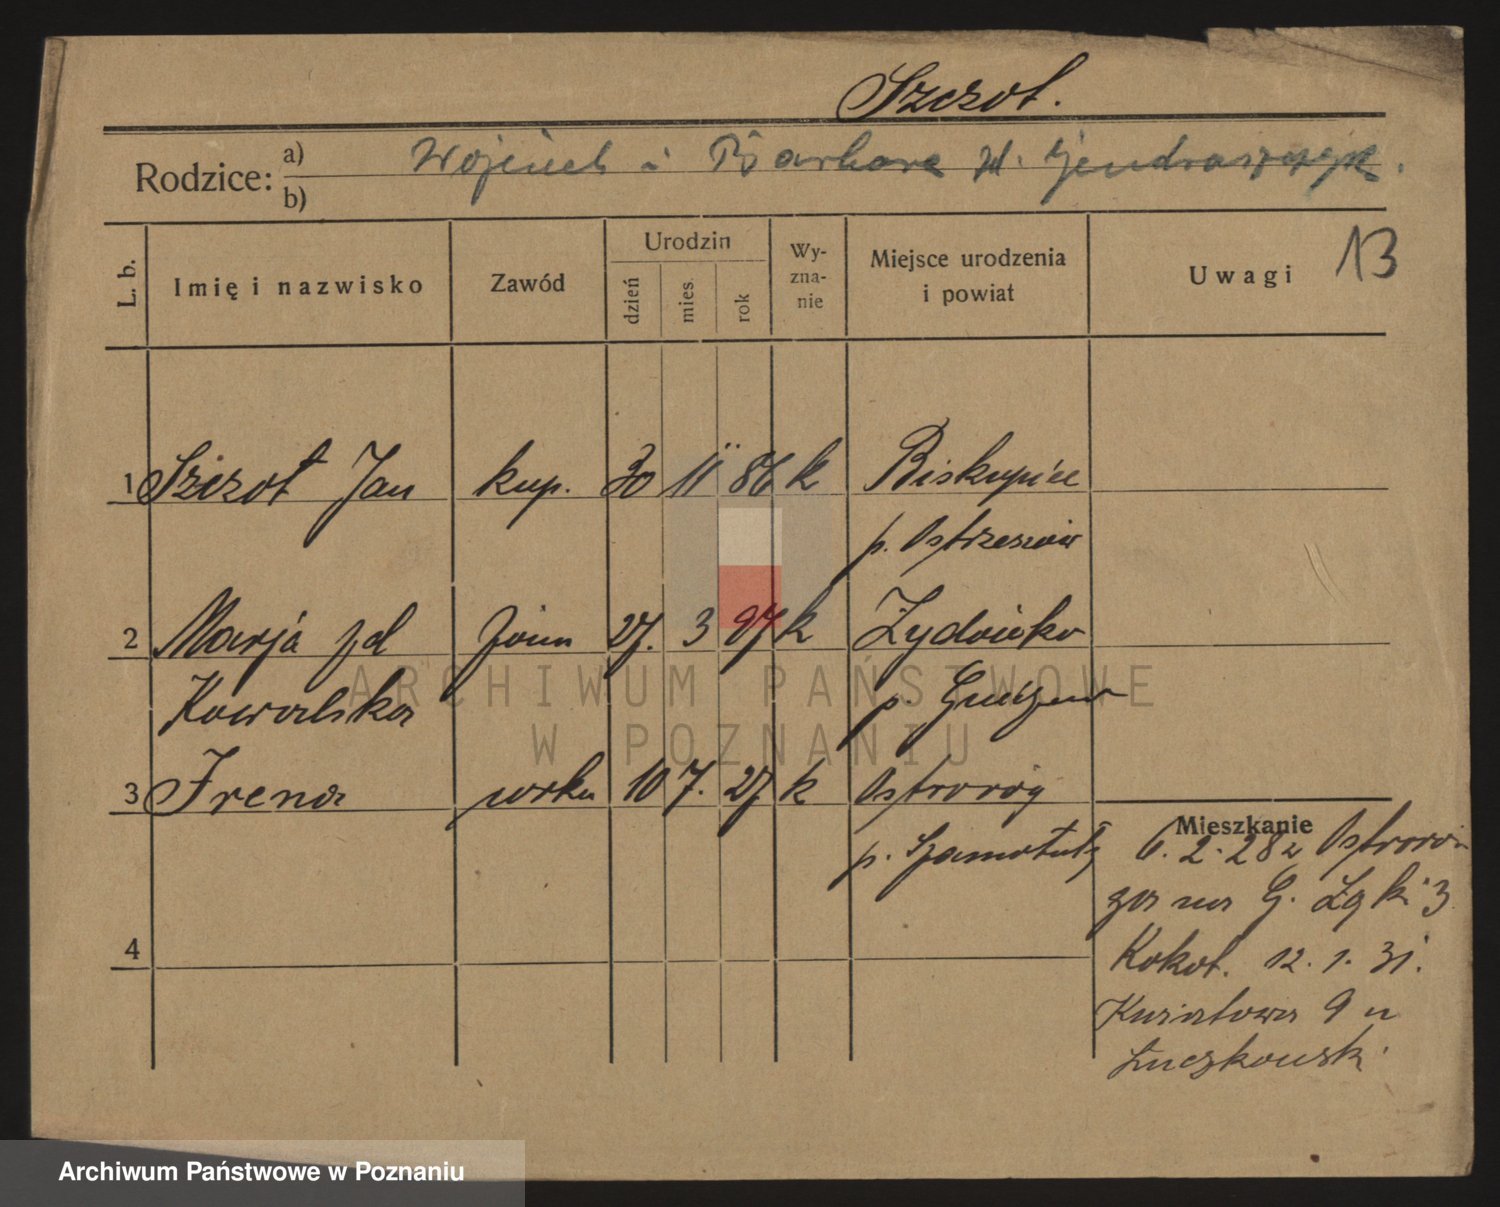 Szczot.
Rodzice: a) b)
Wojciech i Barbara zd. Jendraszczyk.
13
L. b.
Imię i nazwisko
Zawód
Urodzin
dzień
mies.
rok
Wy-
zna-
nie
Miejsce urodzenia
i powiat
Uwagi
1 Szczot Jan kup. 30 11 86 k Biskupice
p. Ostrzeszów
2 Marja zd żona 27. 3 97 k Żydówko
Kowalska p.
3 Irena córka 10 7. 27 k Ostroróg
p. Szamotuły
4
Mieszkanie
6. 2. 28 z
na G. 3
Kokot. 12. 1. 31.
Kwiatowa 9 u
Luczkowski
ARCHIWUM PAŃSTWOWE
W POZNANIU
Archiwum Państwowe w Poznaniu